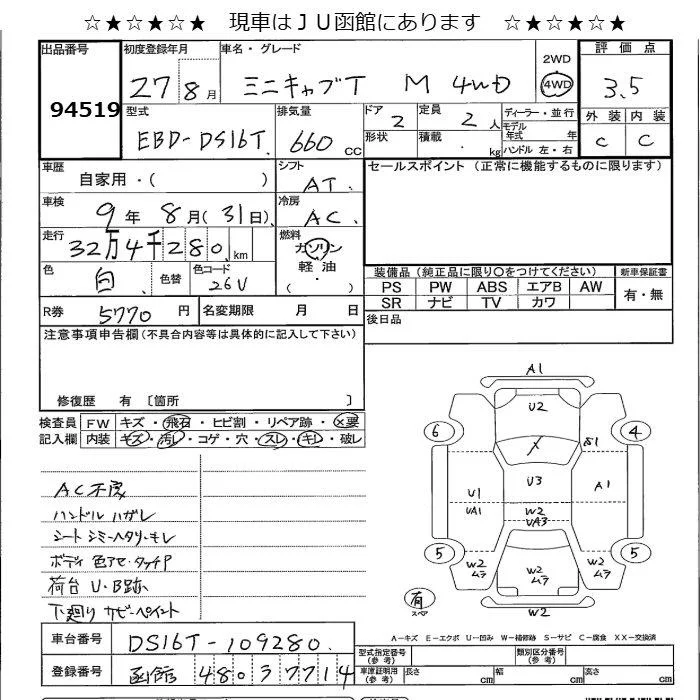 ☆★☆★☆★ 現車はＪＵ函館にあります ☆★☆★☆★
出品番号
94519
初度登録年月
27 8月
車名・グレード
ミニキャブT M 4WD
2WD
4WD
評価点
3.5
外装 内装
C C
型式
EBD-DS16T
排気量
660 cc
ドア 2
形状
定員 2 人
積載 kg
ディーラー・並行
モデル年式 年
ハンドル 左・右
車歴
自家用・( )
シフト
AT
セールスポイント（正常に機能するものに限ります）
車検
9年 8月(31日)
冷房
AC
走行
32万4千280km
燃料
ガソリン
軽油
( ・ )
色
白
色替
色コード
26V
装備品（純正品に限り○をつけてください）
新車保証書
PS PW ABS エアB AW
SR ナビ TV カワ
有・無
R券
5770 円
名変期限 月 日
後日品
注意事項申告欄(不具合内容等は具体的に記入して下さい)
修復歴 有 〔箇所 〕
検査員記入欄
FW キズ・飛石・ヒビ割・リペア跡・×要
内装 キズ・汚レ・コゲ・穴・スレ・キレ・破レ
AC不良
ハンドル ハガレ
シート シミ・ヘタリ・キレ
ボディ 色アセ・タッチP
荷台 U・B跡
下廻り サビ・ペイント
A1
U2
6
4
U1
UA1
U3
A1
W2
UA3
5
5
W2
ムラ
W2
ムラ
W2
ムラ
有
スペア
W2
A－キズ E－エクボ U－凹み W－補修跡 S－サビ C－腐食 XX－交換済
車台番号
DS16T-109280
登録番号
函館 480 ﾇ 7714
型式指定番号
（参考）
類別区分番号
（参考）
車庫証明用
（参考）
長さ cm
幅 cm
高さ cm